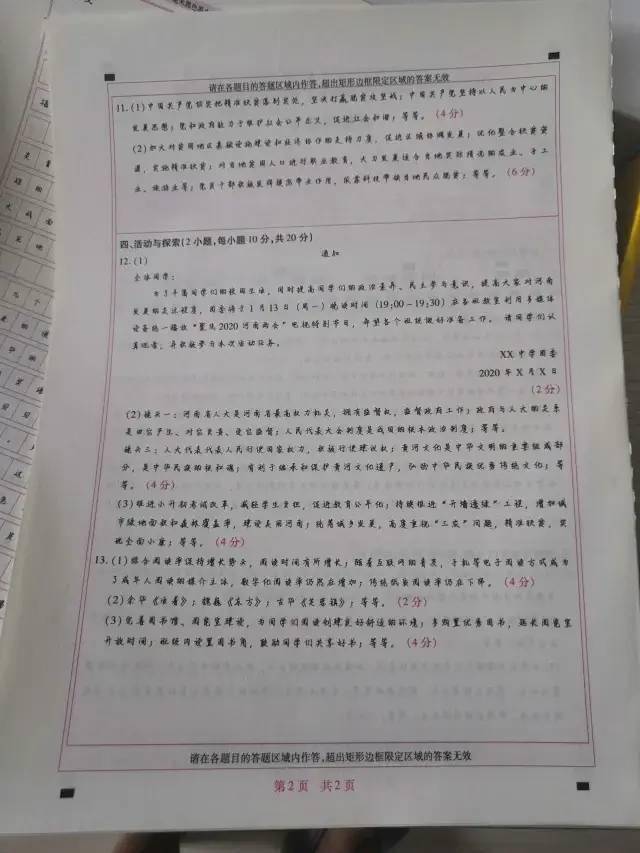 请在各题目的答题区域内作答,超出矩形边框限定区域的答案无效
11.(1)中国共产党领袖把精准扶贫落到实处,坚决打赢脱贫攻坚战;中国共产党坚持以人民为中心的
发展思想;党和政府致力于维护社会公平正义,促进社会和谐;等等。(4分)
(2)加大对贫困地区基础设施建设和经济协作的支持力度,促进区域协调发展;优化整合扶贫资
源,实施精准扶贫;对当地贫困人口进行职业教育,大力发展适合当地实际情况的农业、手工
业、旅游业等;党员干部积极发挥模范带头作用,依靠科技带领当地民众脱贫;等等。(6分)
四、活动与探索(2小题,每小题10分,共20分)
12.(1)
通知
全体同学:
为了丰富同学们的校园生活,同时提高同学们的政治素养、民主参与意识,提高大家对河南
发展的关注程度,团委将于1月13日(周一)晚读时间(19:00-19:30)在各班教室利用多媒体
设备统一播放“聚焦2020河南两会”电视特别节目,希望各个班级做好准备工作。请同学们认
真观看,并积极参与本次活动任务。
XX中学团委
2020年X月X日
(2分)
(2)镜头一:河南省人大是河南省最高权力机关,拥有监督权,监督政府工作;政府与人大的关系
是由它产生、对它负责、受它监督;人民代表大会制度是我国的根本政治制度;等等。
镜头二:人大代表代表人民行使国家权力,积极行使建议权;黄河文化是中华文明的重要组成部
分,是中华民族的根和魂;有利于继承和保护黄河文化遗产,弘扬中华民族优秀传统文化;等
等。(4分)
(3)推进小升初考试改革,减轻学生负担,促进教育公平化;持续推进“开墙透绿”工程,增加城
市绿地面积和森林覆盖率,建设美丽河南;统筹城乡发展,高度重视“三农”问题,精准扶贫,实
现全面小康;等等。(4分)
13.(1)综合阅读率保持增长势头,阅读时间有所增长;随着互联网的普及,手机等电子阅读方式成为
了成年人阅读的媒介主体,数字化阅读率仍然在增加;传统纸质阅读率仍在下降。(4分)
(2)余华《活着》;魏巍《东方》;古华《芙蓉镇》;等等。(2分)
(3)完善图书馆、阅览室建设,为同学们阅读创建良好舒适的环境;多购置优秀图书,延长阅览室
开放时间;班级内设置图书角,鼓励同学们共享好书;等等。(4分)
请在各题目的答题区域内作答,超出矩形边框限定区域的答案无效
第2页 共2页